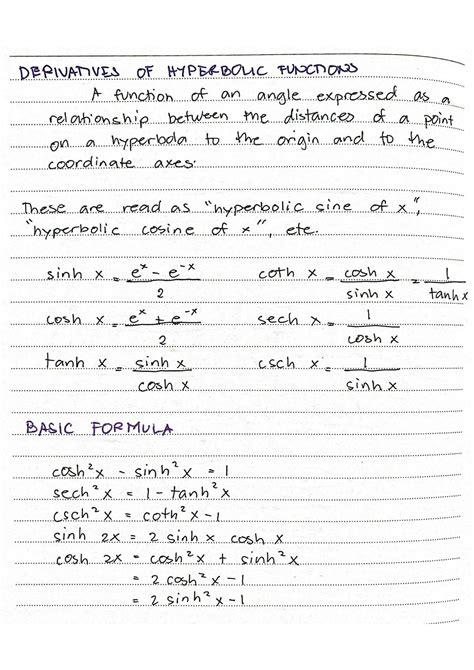 DERIVATIVES OF HYPERBOLIC FUNCTIONS
A function of an angle expressed as a
relationship between the distances of a point
on a hyperbola to the origin and to the
coordinate axes.
These are read as "hyperbolic sine of x",
"hyperbolic cosine of x", etc.
sinh x = (e^x - e^-x)/2    coth x = cosh x/sinh x = 1/tanh x
cosh x = (e^x + e^-x)/2    sech x = 1/cosh x
tanh x = sinh x/cosh x    csch x = 1/sinh x
BASIC FORMULA
cosh²x - sinh²x = 1
sech²x = 1 - tanh²x
csch²x = coth²x - 1
sinh 2x = 2 sinh x cosh x
cosh 2x = cosh²x + sinh²x
= 2 cosh²x - 1
= 2 sinh²x - 1